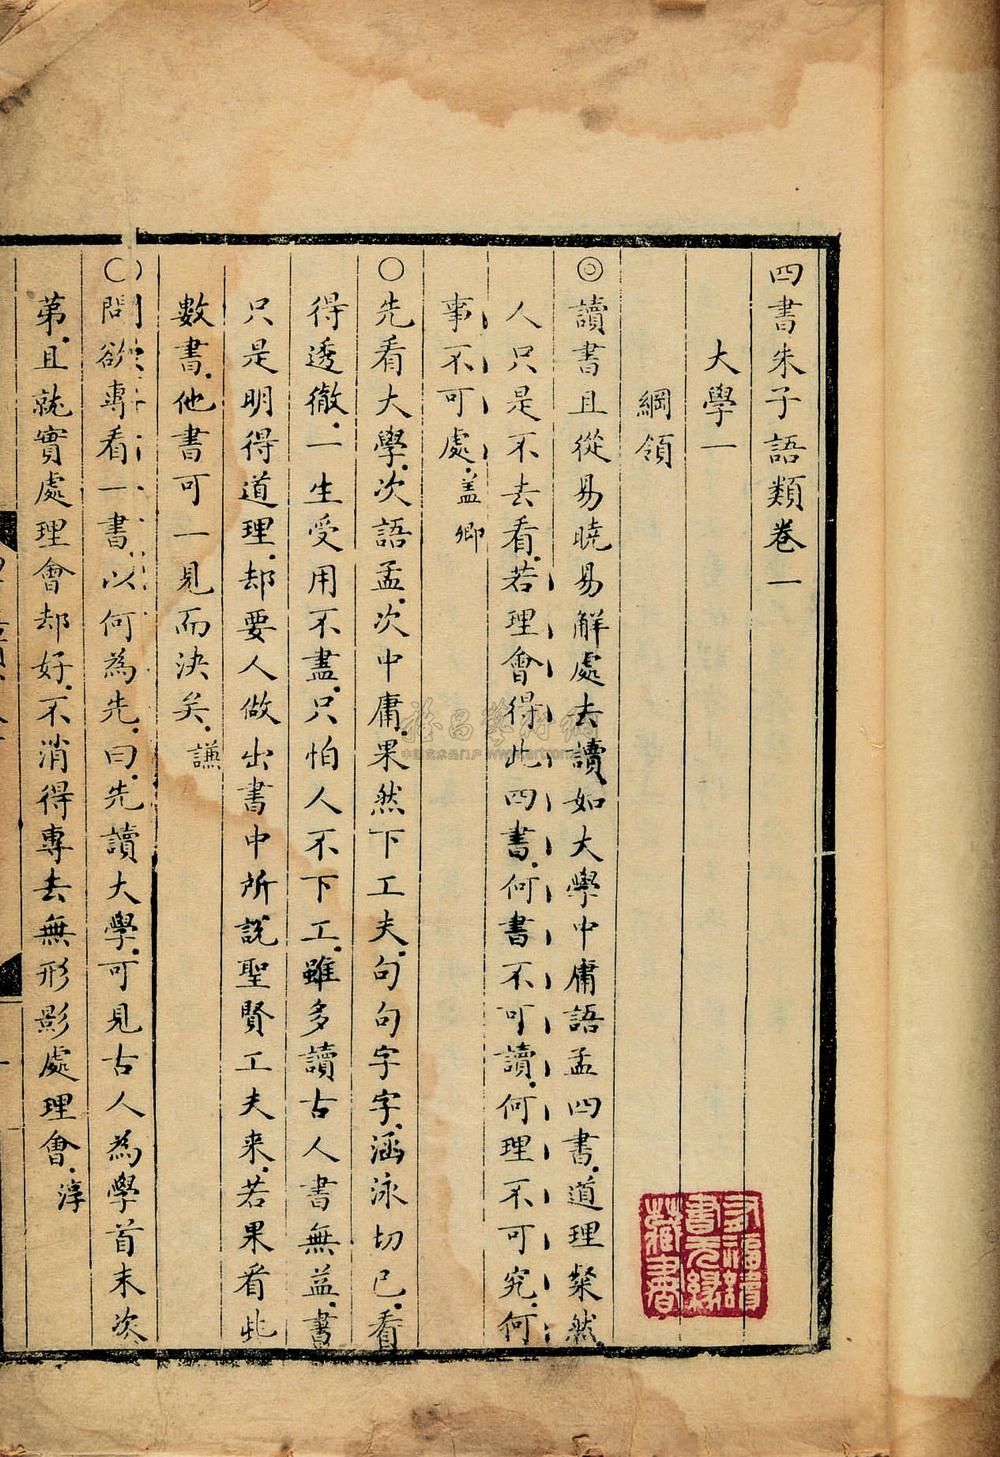 四書朱子語類卷一
大學一
綱領
◎讀書且從易曉易解處去讀如大學中庸語孟四書.道理粲然.
人只是不去看.若理會得此四書.何書不可讀.何理不可究.何
事不可處.蓋卿
○先看大學.次語孟.次中庸.果然下工夫.句句字字.涵泳切己.看
得透徹.一生受用不盡.只怕人不下工.雖多讀古人書無益.書
只是明得道理.却要人做出書中所説聖賢工夫来.若果看此
數書.他書可一見而決矣.謙
○問欲專看一書.以何為先.曰.先讀大學.可見古人為學首末次
第.且就實處理會却好.不消得專去無形影處理會.淳